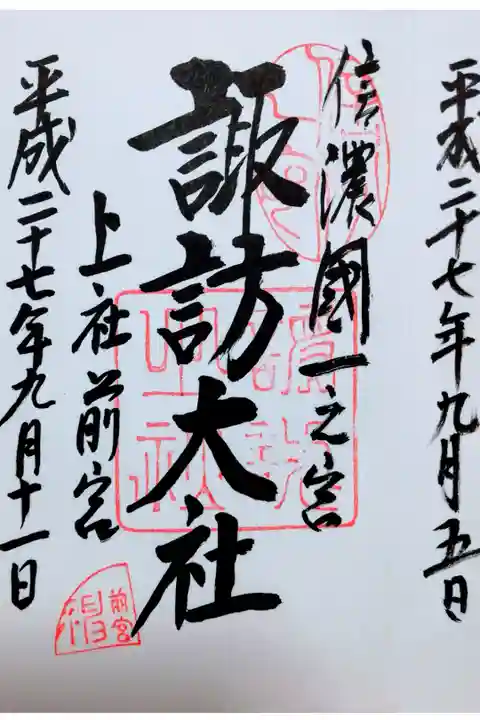 平成二十七年九月五日
信濃國一之宮
諏訪大社
上社前宮
平成二十七年九月十一日
前宮